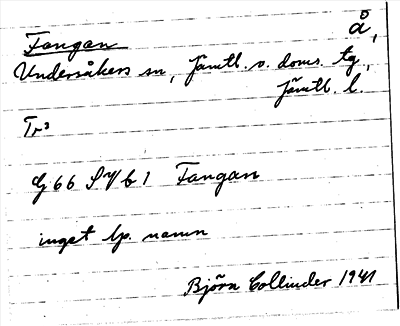 Fangan å,
Undersåkers sn, Jämtl. v. doms. tg.,
Jämtl. l.
Tr³
G 66 SV b 1 Fangan
inget lp. namn
Björn Collinder 1941